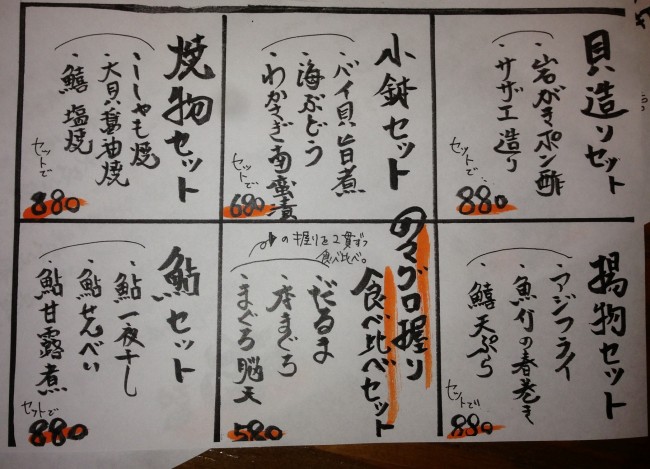 貝造りセット
・岩がきポン酢
・サザエ造り
セットで
880
小鉢セット
・バイ貝旨煮
・海ぶどう
・わかさぎ南蛮漬
セットで
680
焼物セット
・ししゃも焼
・大貝醤油焼
・鱚塩焼
セットで
880
揚物セット
・アジフライ
・魚介の春巻き
・鱚天ぷら
セットで
880
のマグロ握り
食べ比べセット
の握りを2貫ずつ
食べ比べ。
・だるま
・本まぐろ
・まぐろ脳天
580
鮎セット
・鮎一夜干し
・鮎せんべい
・鮎甘露煮
セットで
880